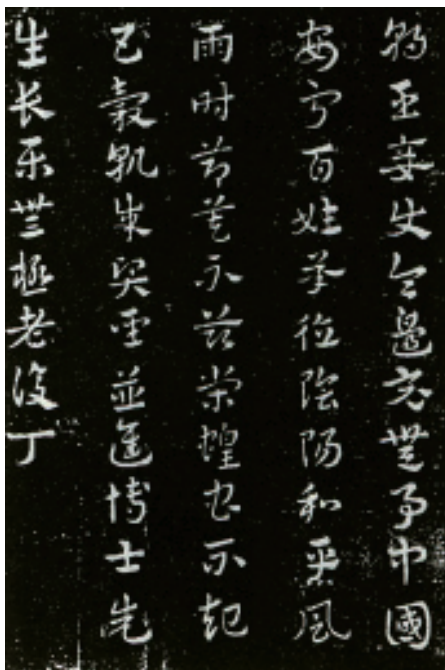 朝臣妾使令邊竟無事中國
安寧百姓承德陰陽和平風
雨時節莫不茲榮蝗災不起
五穀孰成賢聖並進博士先
生長樂無極老復丁